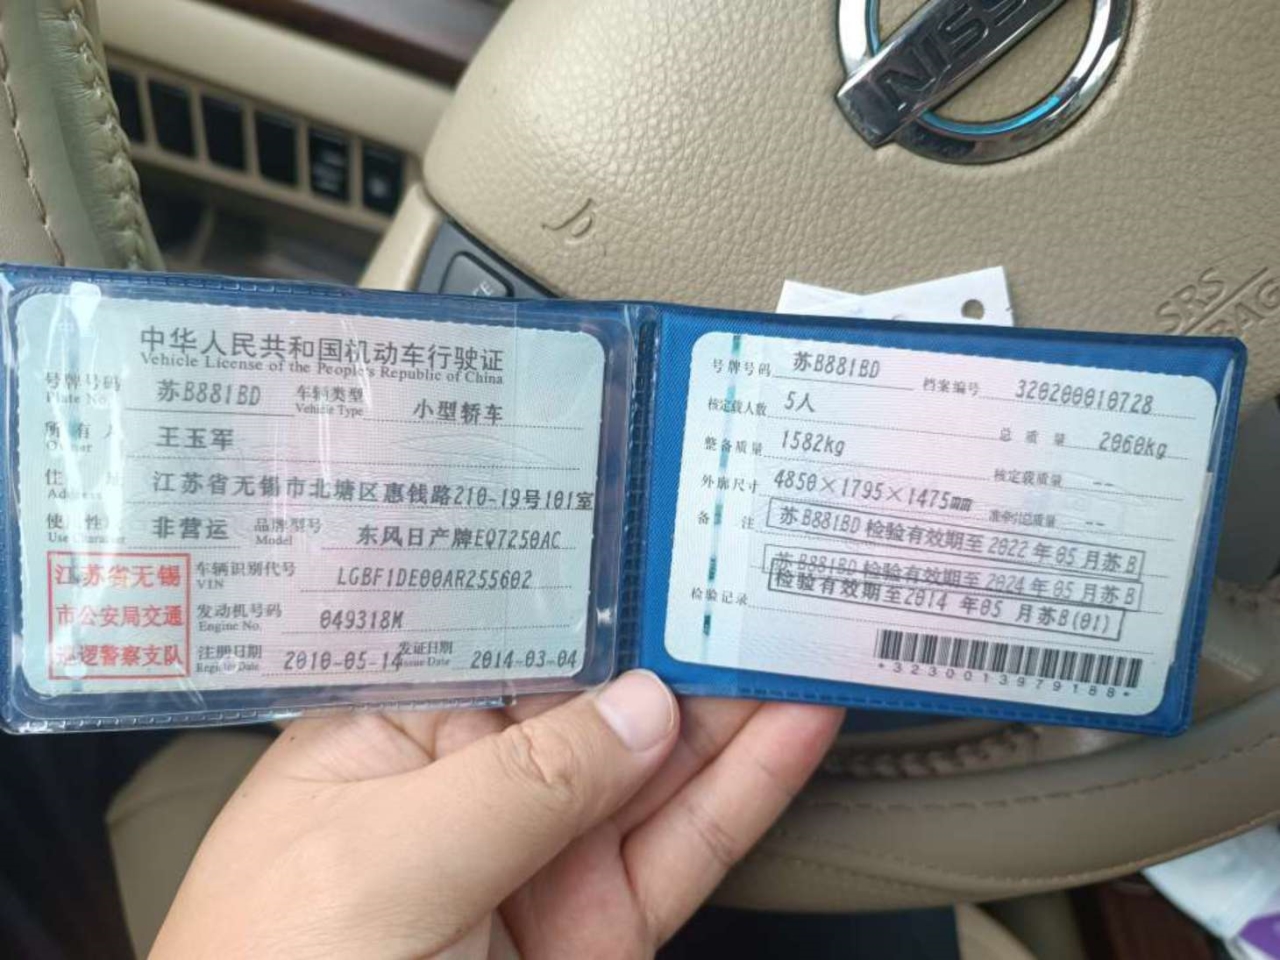 NISS
SRS
中华人民共和国机动车行驶证
Vehicle License of the People's Republic of China
号牌号码 苏B881BD 车辆类型 小型轿车
Plate No. Vehicle Type
所有人 王玉军
Owner
住址 江苏省无锡市北塘区惠钱路210-19号101室
Address
使用性质 非营运 品牌型号 东风日产牌EQ7250AC
Use Character Model
江苏省无锡
市公安局交通
巡逻警察支队
车辆识别代号 LGBF1DE00AR255602
VIN
发动机号码 049318M
Engine No.
注册日期 2010-05-14 发证日期 2014-03-04
Register Date Issue Date
号牌号码 苏B881BD 档案编号 320200010728
核定载人数 5人 总质量 2060kg
整备质量 1582kg 核定载质量 --
外廓尺寸 4850×1795×1475mm 准牵引总质量 --
备注 苏B881BD 检验有效期至2022年05月苏B
苏B881BD 检验有效期至2024年05月苏B
检验记录 检验有效期至2014年05月苏B(01)
*3230013979188*